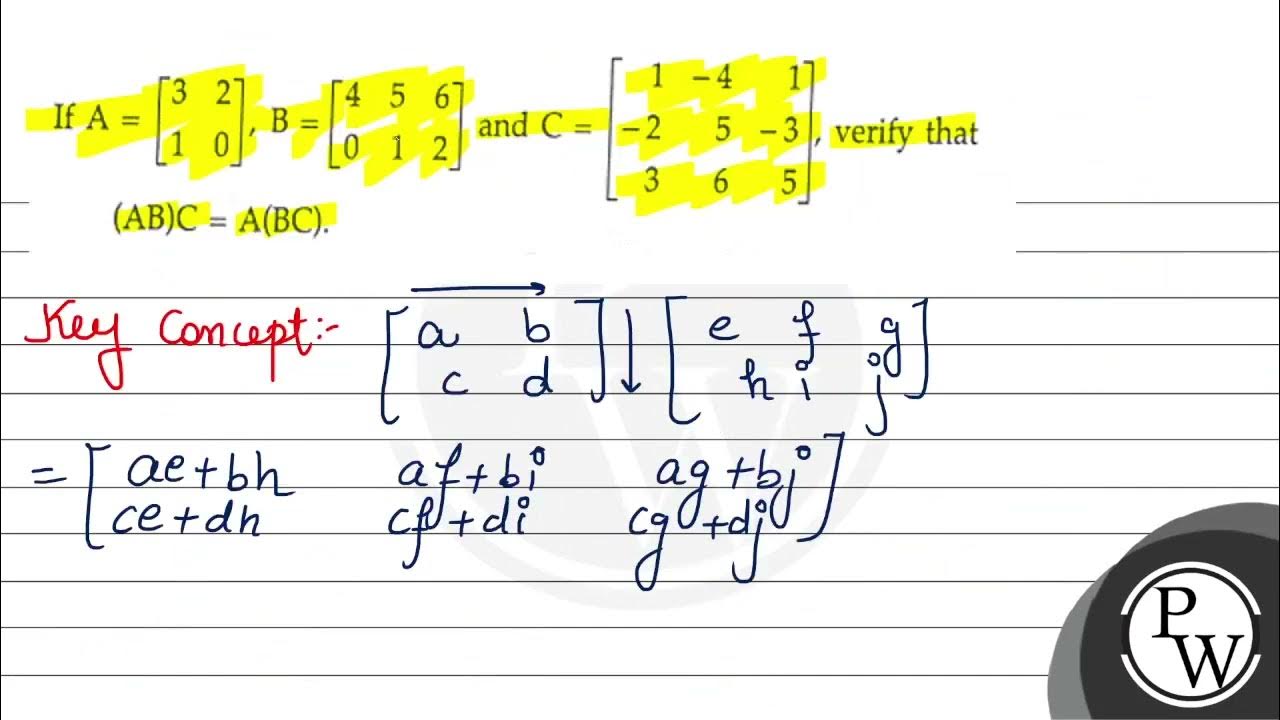 If A = [3 2 1 0], B = [4 5 6 0 1 2] and C = [1 −4 1 −2 5 −3 3 6 5], verify that
(AB)C = A(BC).
Key Concept:- [a b c d] [e f g h i j]
= [ae+bh af+bi ag+bj
ce+dh cf+di cg+dj]
PW